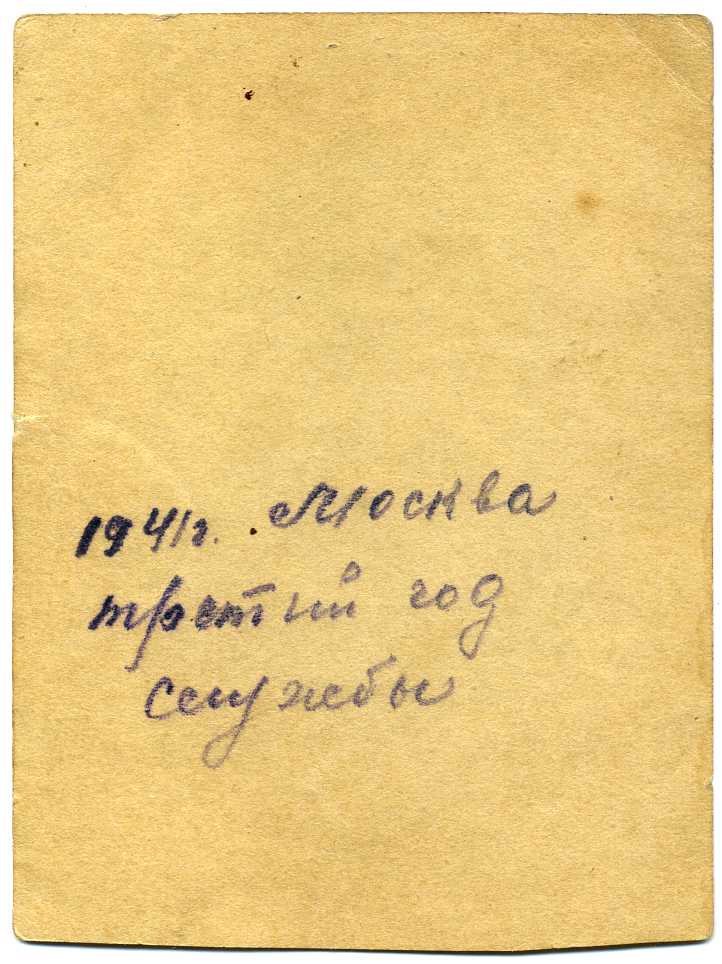 1941г. Москва
третий год
службы